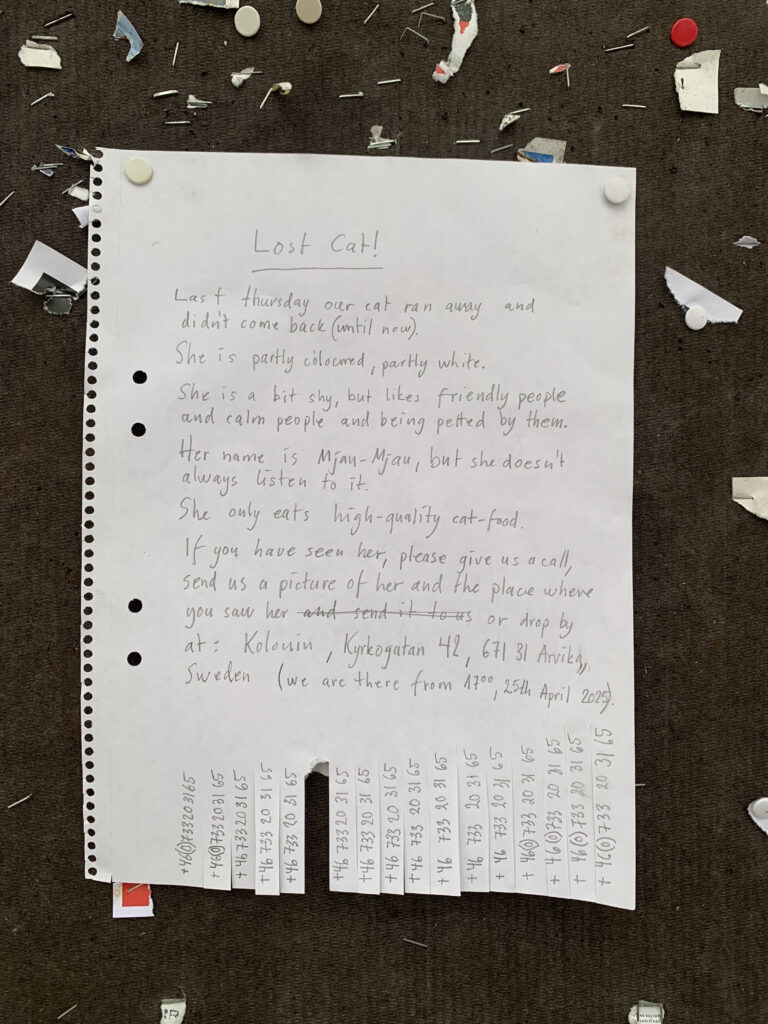 Lost Cat!
Last thursday our cat ran away and
didn't come back (until now).
She is partly coloured, partly white.
She is a bit shy, but likes friendly people
and calm people and being petted by them.
Her name is Mjau-Mjau, but she doesn't
always listen to it.
She only eats high-quality cat-food.
If you have seen her, please give us a call,
send us a picture of her and the place where
you saw her and send it to us or drop by
at: Kolonin, Kyrkogatan 42, 671 31 Arvika,
Sweden (we are there from 17⁰⁰, 25th April 2025).
+46(0)733203165
+46(0)733203165
+46733203165
+46 733 20 31 65
+46 733 20 31 65
+46 733 20 31 65
+46 733 20 31 65
+46 733 20 31 65
+46 733 20 31 65
+46 733 20 31 65
+46 733 20 31 65
+46 733 20 31 65
+46(0)733 20 31 65
+46(0)733 20 31 65
+46(0)733 20 31 65
+46(0)733 20 31 65